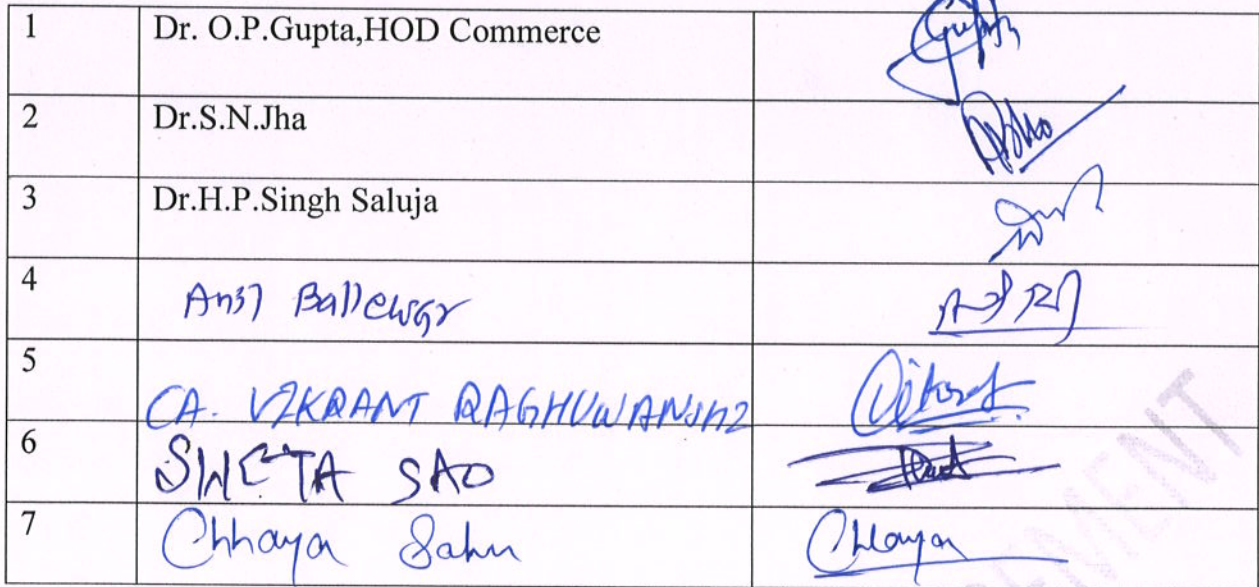 1 Dr. O.P.Gupta,HOD Commerce Gupta
2 Dr.S.N.Jha
3 Dr.H.P.Singh Saluja
4
5 CA. VIKRANT RAGHUWANSHI
6 SWETA SAO
7 Chhaya Sahu Chhaya
MENT